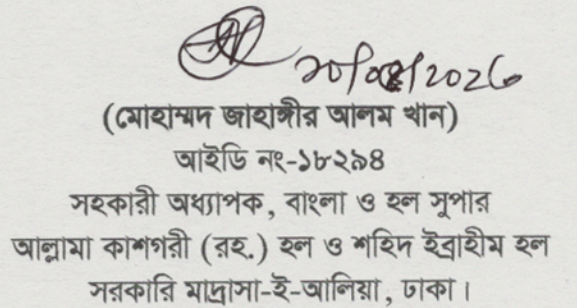 (মোহাম্মদ জাহাঙ্গীর আলম খান)
আইডি নং-১৮২৯৪
সহকারী অধ্যাপক, বাংলা ও হল সুপার
আল্লামা কাশগরী (রহ.) হল ও শহিদ ইব্রাহীম হল
সরকারি মাদ্রাসা-ই-আলিয়া, ঢাকা।